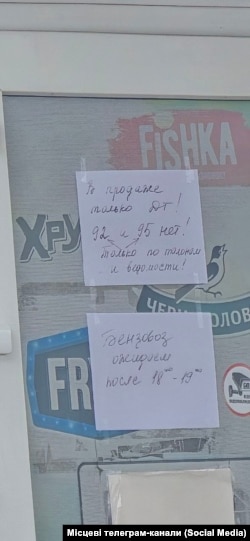 FISHKA
В продаже
только ДТ!
92 и 95 нет!
только по талонам
и ведомости!
ХРУ
ЧЕР ГОЛОВ
FR
Бензовоз
ожидаем
после 18⁰⁰-19⁰⁰
Місцеві телеграм-канали (Social Media)